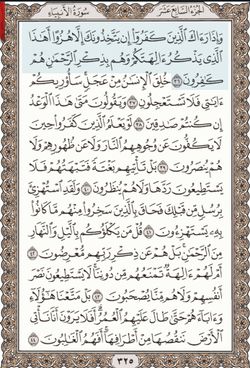 الجزء السابع عشر
سورة الأنبياء
وَإِذَا رَءَاكَ ٱلَّذِينَ كَفَرُوٓاْ إِن يَتَّخِذُونَكَ إِلَّا هُزُوًا أَهَٰذَا
ٱلَّذِي يَذۡكُرُ ءَالِهَتَكُمۡ وَهُم بِذِكۡرِ ٱلرَّحۡمَٰنِ هُمۡ
كَٰفِرُونَ ٣٦ خُلِقَ ٱلۡإِنسَٰنُ مِنۡ عَجَلٖۚ سَأُوْرِيكُمۡ
ءَايَٰتِي فَلَا تَسۡتَعۡجِلُونِ ٣٧ وَيَقُولُونَ مَتَىٰ هَٰذَا ٱلۡوَعۡدُ
إِن كُنتُمۡ صَٰدِقِينَ ٣٨ لَوۡ يَعۡلَمُ ٱلَّذِينَ كَفَرُواْ حِينَ
لَا يَكُفُّونَ عَن وُجُوهِهِمُ ٱلنَّارَ وَلَا عَن ظُهُورِهِمۡ وَلَا هُمۡ
يُنصَرُونَ ٣٩ بَلۡ تَأۡتِيهِم بَغۡتَةٗ فَتَبۡهَتُهُمۡ فَلَا
يَسۡتَطِيعُونَ رَدَّهَا وَلَا هُمۡ يُنظَرُونَ ٤٠ وَلَقَدِ ٱسۡتُهۡزِئَ
بِرُسُلٖ مِّن قَبۡلِكَ فَحَاقَ بِٱلَّذِينَ سَخِرُواْ مِنۡهُم مَّا كَانُواْ
بِهِۦ يَسۡتَهۡزِءُونَ ٤١ قُلۡ مَن يَكۡلَؤُكُم بِٱلَّيۡلِ وَٱلنَّهَارِ
مِنَ ٱلرَّحۡمَٰنِۚ بَلۡ هُمۡ عَن ذِكۡرِ رَبِّهِم مُّعۡرِضُونَ ٤٢
أَمۡ لَهُمۡ ءَالِهَةٞ تَمۡنَعُهُم مِّن دُونِنَاۚ لَا يَسۡتَطِيعُونَ نَصۡرَ
أَنفُسِهِمۡ وَلَا هُم مِّنَّا يُصۡحَبُونَ ٤٣ بَلۡ مَتَّعۡنَا هَٰٓؤُلَآءِ
وَءَابَآءَهُمۡ حَتَّىٰ طَالَ عَلَيۡهِمُ ٱلۡعُمُرُۗ أَفَلَا يَرَوۡنَ أَنَّا نَأۡتِي
ٱلۡأَرۡضَ نَنقُصُهَا مِنۡ أَطۡرَافِهَآۚ أَفَهُمُ ٱلۡغَٰلِبُونَ ٤٤
٣٢٥